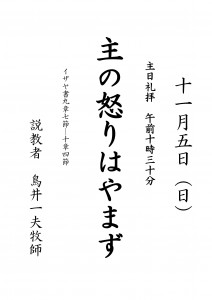 十一月五日（日）
主日礼拝　午前十時三十分
主の怒りはやまず
イザヤ書九章七節―十章四節
説教者　鳥井一夫牧師